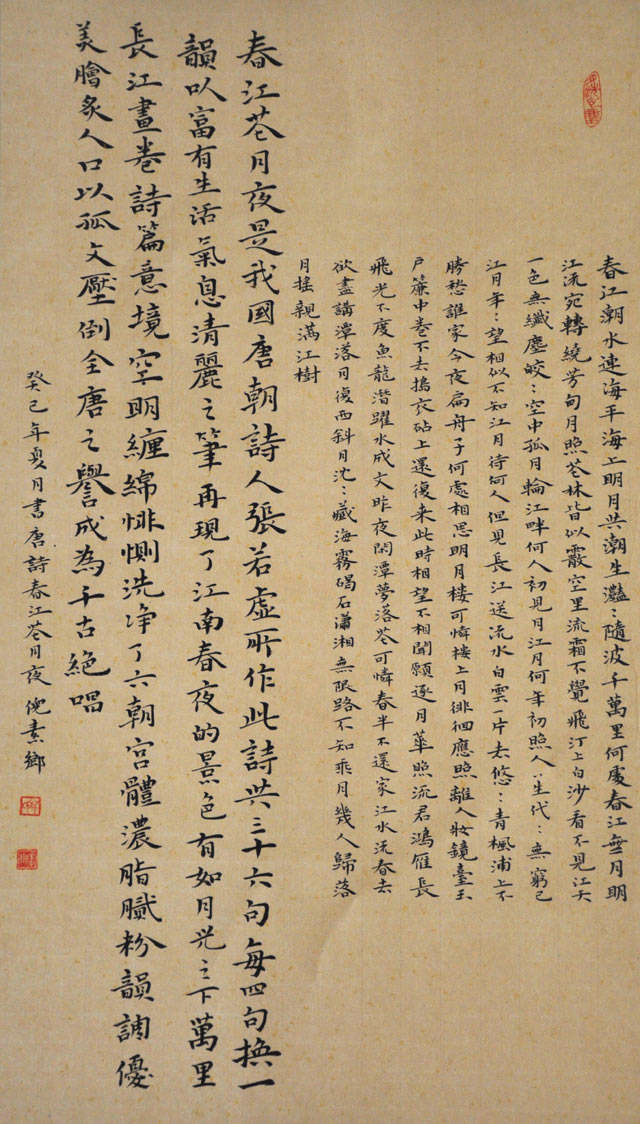 春江朝水連海平海上明月共潮生灩:隨波千萬里何處春江無月明
江流宛轉繞芳甸月照花林皆似霰空里流霜不覺飛汀上白沙看不見江天
一色無纖塵皎:空中孤月輪江畔何人初見月江月何年初照人:生代:無窮已
江月年:望相似不知江月待何人但見長江送流水白雲一片去悠:青楓浦上不
勝愁誰家今夜扁舟子何處相思明月楼可憐楼上月徘徊應照離人妝鏡臺玉
戶簾中卷不去搗衣砧上還復来此時相望不相聞願逐月華照流君鴻雁長
飛光不度魚龍潛躍水成文昨夜閑潭夢落花可憐春半不還家江水流春去
欲盡講潭落月復西斜月沈:藏海霧碣石瀟湘無限路不知乘月幾人歸落
月搖親滿江樹
春江花月夜是我國唐朝詩人張若虛所作此詩共三十六句每四句換一
韻以富有生活氣息清麗之筆再現了江南春夜的景色有如月光之下萬里
長江畫卷詩篇意境空明纏綿悱惻洗净了六朝宮體濃脂膩粉韻調優
美膾炙人口以孤文壓倒全唐之譽成為千古絕唱
癸巳年夏月書唐詩春江花月夜倪素鄉